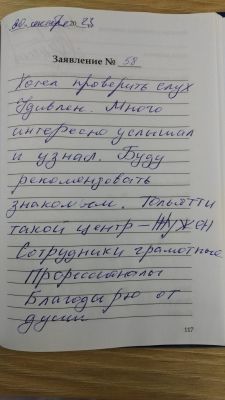 20. октября 23
Заявление № 58
Хотел проверить слух
Удивлен. Много
интересно услышал
и узнал. Буду
рекомендовать
знакомым. Тольятти
такой центр – Нужен
Сотрудники грамотные
Професионалы
Благодарю от
души
117